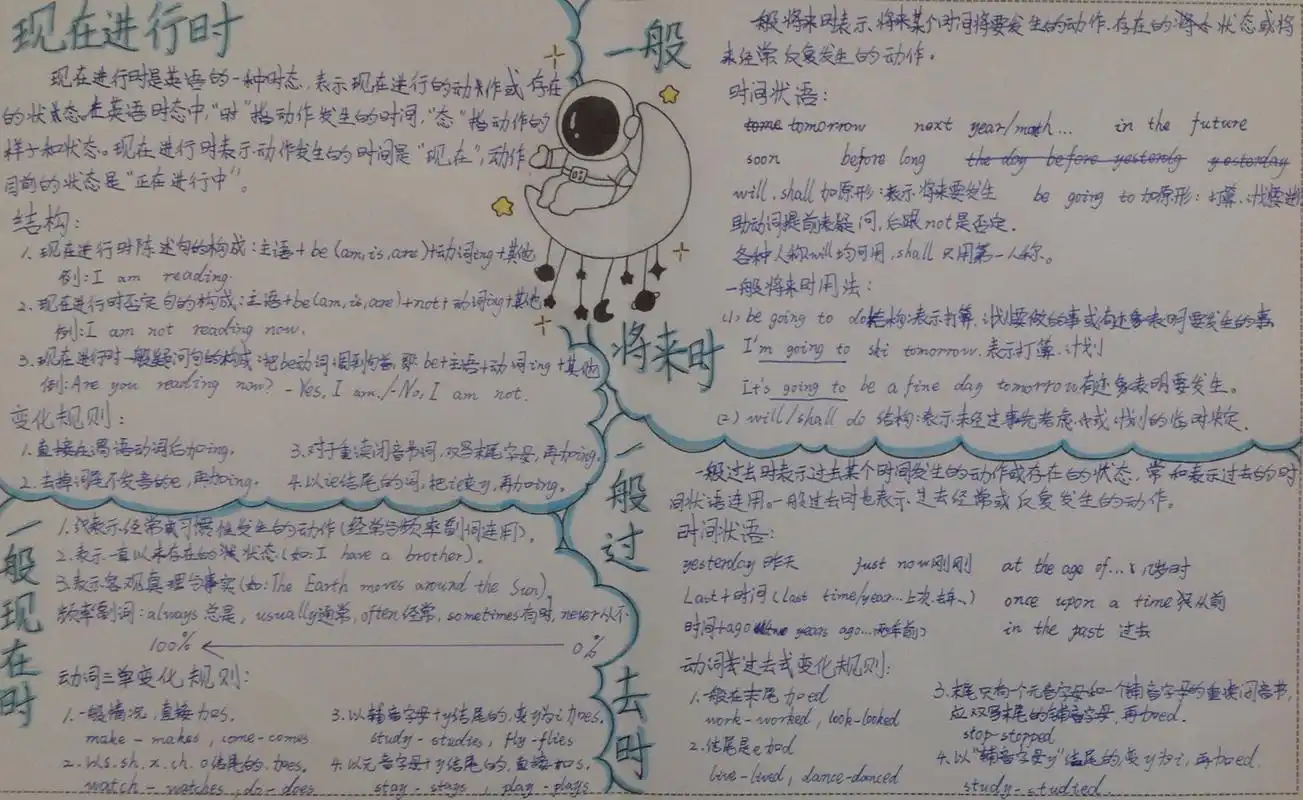 现在进行时
现在进行时是英语的一种时态，表示现在进行的动作或存在
的状态。在英语时态中，"时"指动作发生的时间，"态"指动作的
样子和状态。现在进行时表示动作发生的时间是"现在"，动作
目前的状态是"正在进行中"。
结构：
1.现在进行时陈述句的构成：主语+be(am,is,are)+动词ing+其他
例：I am reading.
2.现在进行时否定句的构成：主语+be(am,is,are)+not+动词ing+其他
例：I am not reading now.
3.现在进行时一般疑问句的构成：把be动词调到句首 即：be+主语+动词ing+其他
例：Are you reading now? -Yes, I am./-No, I am not.
变化规则：
1.直接在谓语动词后加ing.
2.去掉词尾不发音的e,再加ing.
3.对于重读闭音节词,双写末尾字母,再加ing.
4.以ie结尾的词,把ie变y,再加ing.
一般
将来时
一般将来时表示将来某个时间将要发生的动作.存在的状态或将
来经常反复发生的动作。
时间状语：
tomorrow next year/month... in the future
soon before long the day before yesterday yesterday
will, shall加原形：表示将来要发生 be going to加原形：打算、计划要
助动词提前表疑问,后跟not是否定.
各种人称will均可用,shall只用第一人称。
一般将来时用法：
(1) be going to do结构：表示打算、计划要做的事或有迹象表明要发生的事
I'm going to ski tomorrow.表示打算、计划
It's going to be a fine day tomorrow有迹象表明要发生。
(2) will/shall do 结构：表示未经过事先考虑、或计划的临时决定.
一般现在时
1.表示经常或习惯性发生的动作(经常与频率副词连用)。
2.表示一直以来存在的状态(如：I have a brother).
3.表示客观真理与事实(如：The Earth moves around the Sun)
频率副词：always总是, usually通常, often经常, sometimes有时, never从不
100% 0%
动词三单变化规则：
1.一般情况,直接加s.
make-makes, come-comes
2.以s.sh.x.ch.o结尾的.加es.
watch-watches, do-does
3.以辅音字母+y结尾的,变y为i加es.
study-studies, fly-flies
4.以元音字母+y结尾的,直接加s.
stay-stays, play-plays
一般过去时
一般过去时表示过去某个时间发生的动作或存在的状态,常和表示过去的时
间状语连用。一般过去时也表示过去经常或反复发生的动作。
时间状语：
yesterday昨天 just now刚刚 at the age of...几岁时
Last+时间(last time/year...上次.去年..) once upon a time很从前
时间+ago years ago...两年前) in the past 过去
动词过去式变化规则：
1.一般在末尾加ed
work-worked, look-looked
2.结尾是e加d
live-lived, dance-danced
3.末尾只有一个元音字母和一个辅音字母的重读闭音节,
应双写末尾的辅音字母,再加ed.
stop-stopped
4.以"辅音字母y"结尾的,变y为i,再加ed.
study-studied